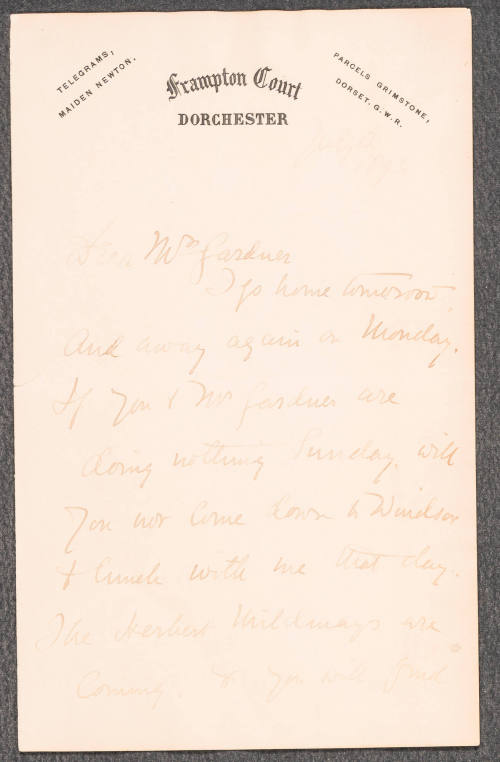 TELEGRAMS,
MAIDEN NEWTON.
Frampton Court
DORCHESTER
PARCELS GRIMSTONE,
DORSET, G.W.R.
July
Dear Mrs Gardner
I go home tomorrow,
and away again on Monday.
If you & Mr Gardner are
doing nothing Sunday, will
you not come down to Windsor
& lunch with me that day.
The Herbert Mildmays are
coming, & you will find